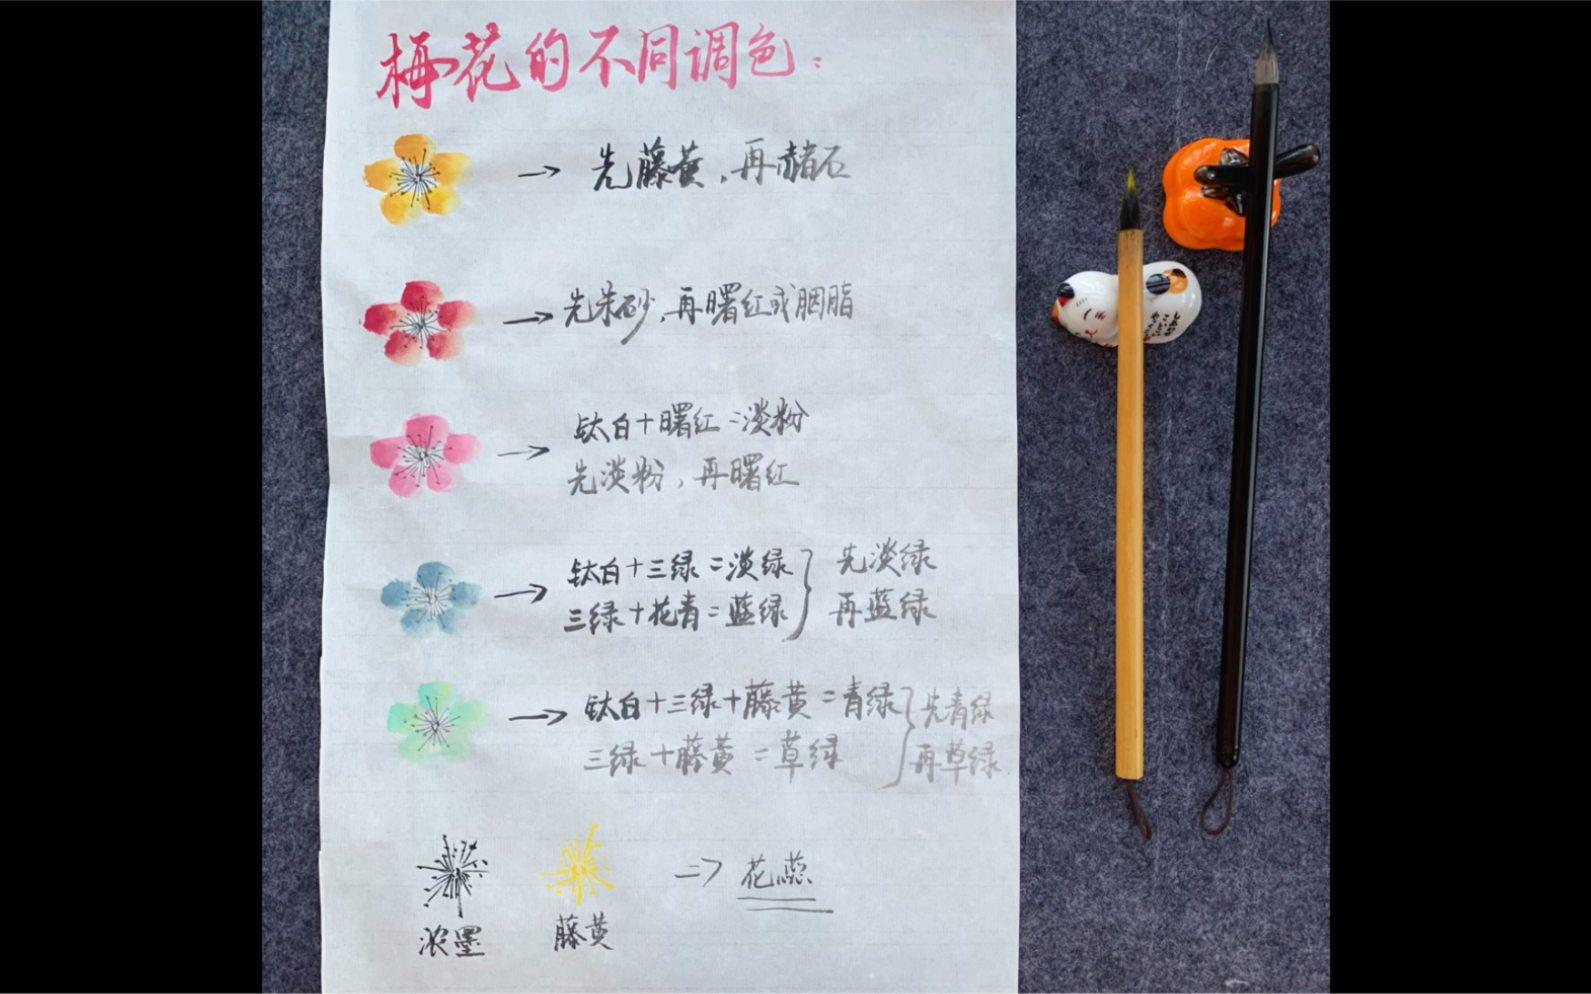 梅花的不同调色：
→ 先藤黄，再赭石
→ 先朱砂，再曙红或胭脂
→ 钛白+曙红=淡粉
先淡粉，再曙红
→ 钛白+三绿=淡绿
三绿+花青=蓝绿
} 先淡绿
再蓝绿
→ 钛白+三绿+藤黄=青绿
三绿+藤黄=草绿
} 先青绿
再草绿
浓墨
藤黄
=> 花蕊